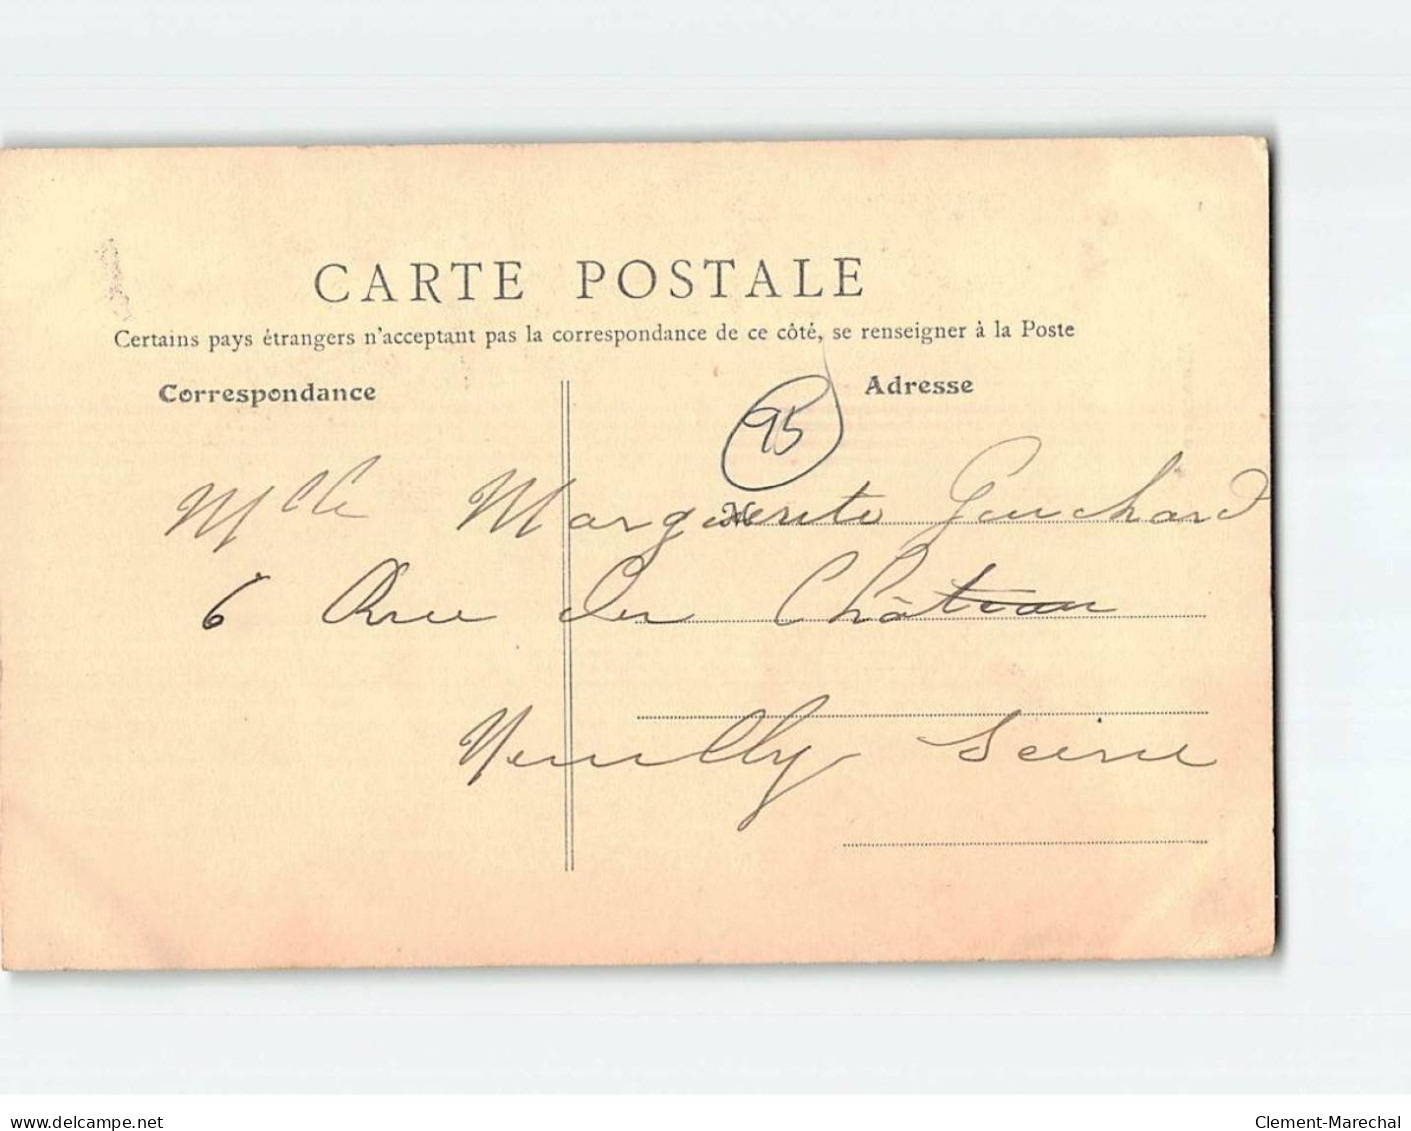 CARTE POSTALE
Certains pays étrangers n'acceptant pas la correspondance de ce côté, se renseigner à la Poste
Correspondance
Adresse
95
Mlle Marguerite Guichard
M
6 Rue du Château
Neuilly Seine
www.delcampe.net
Clement-Marechal